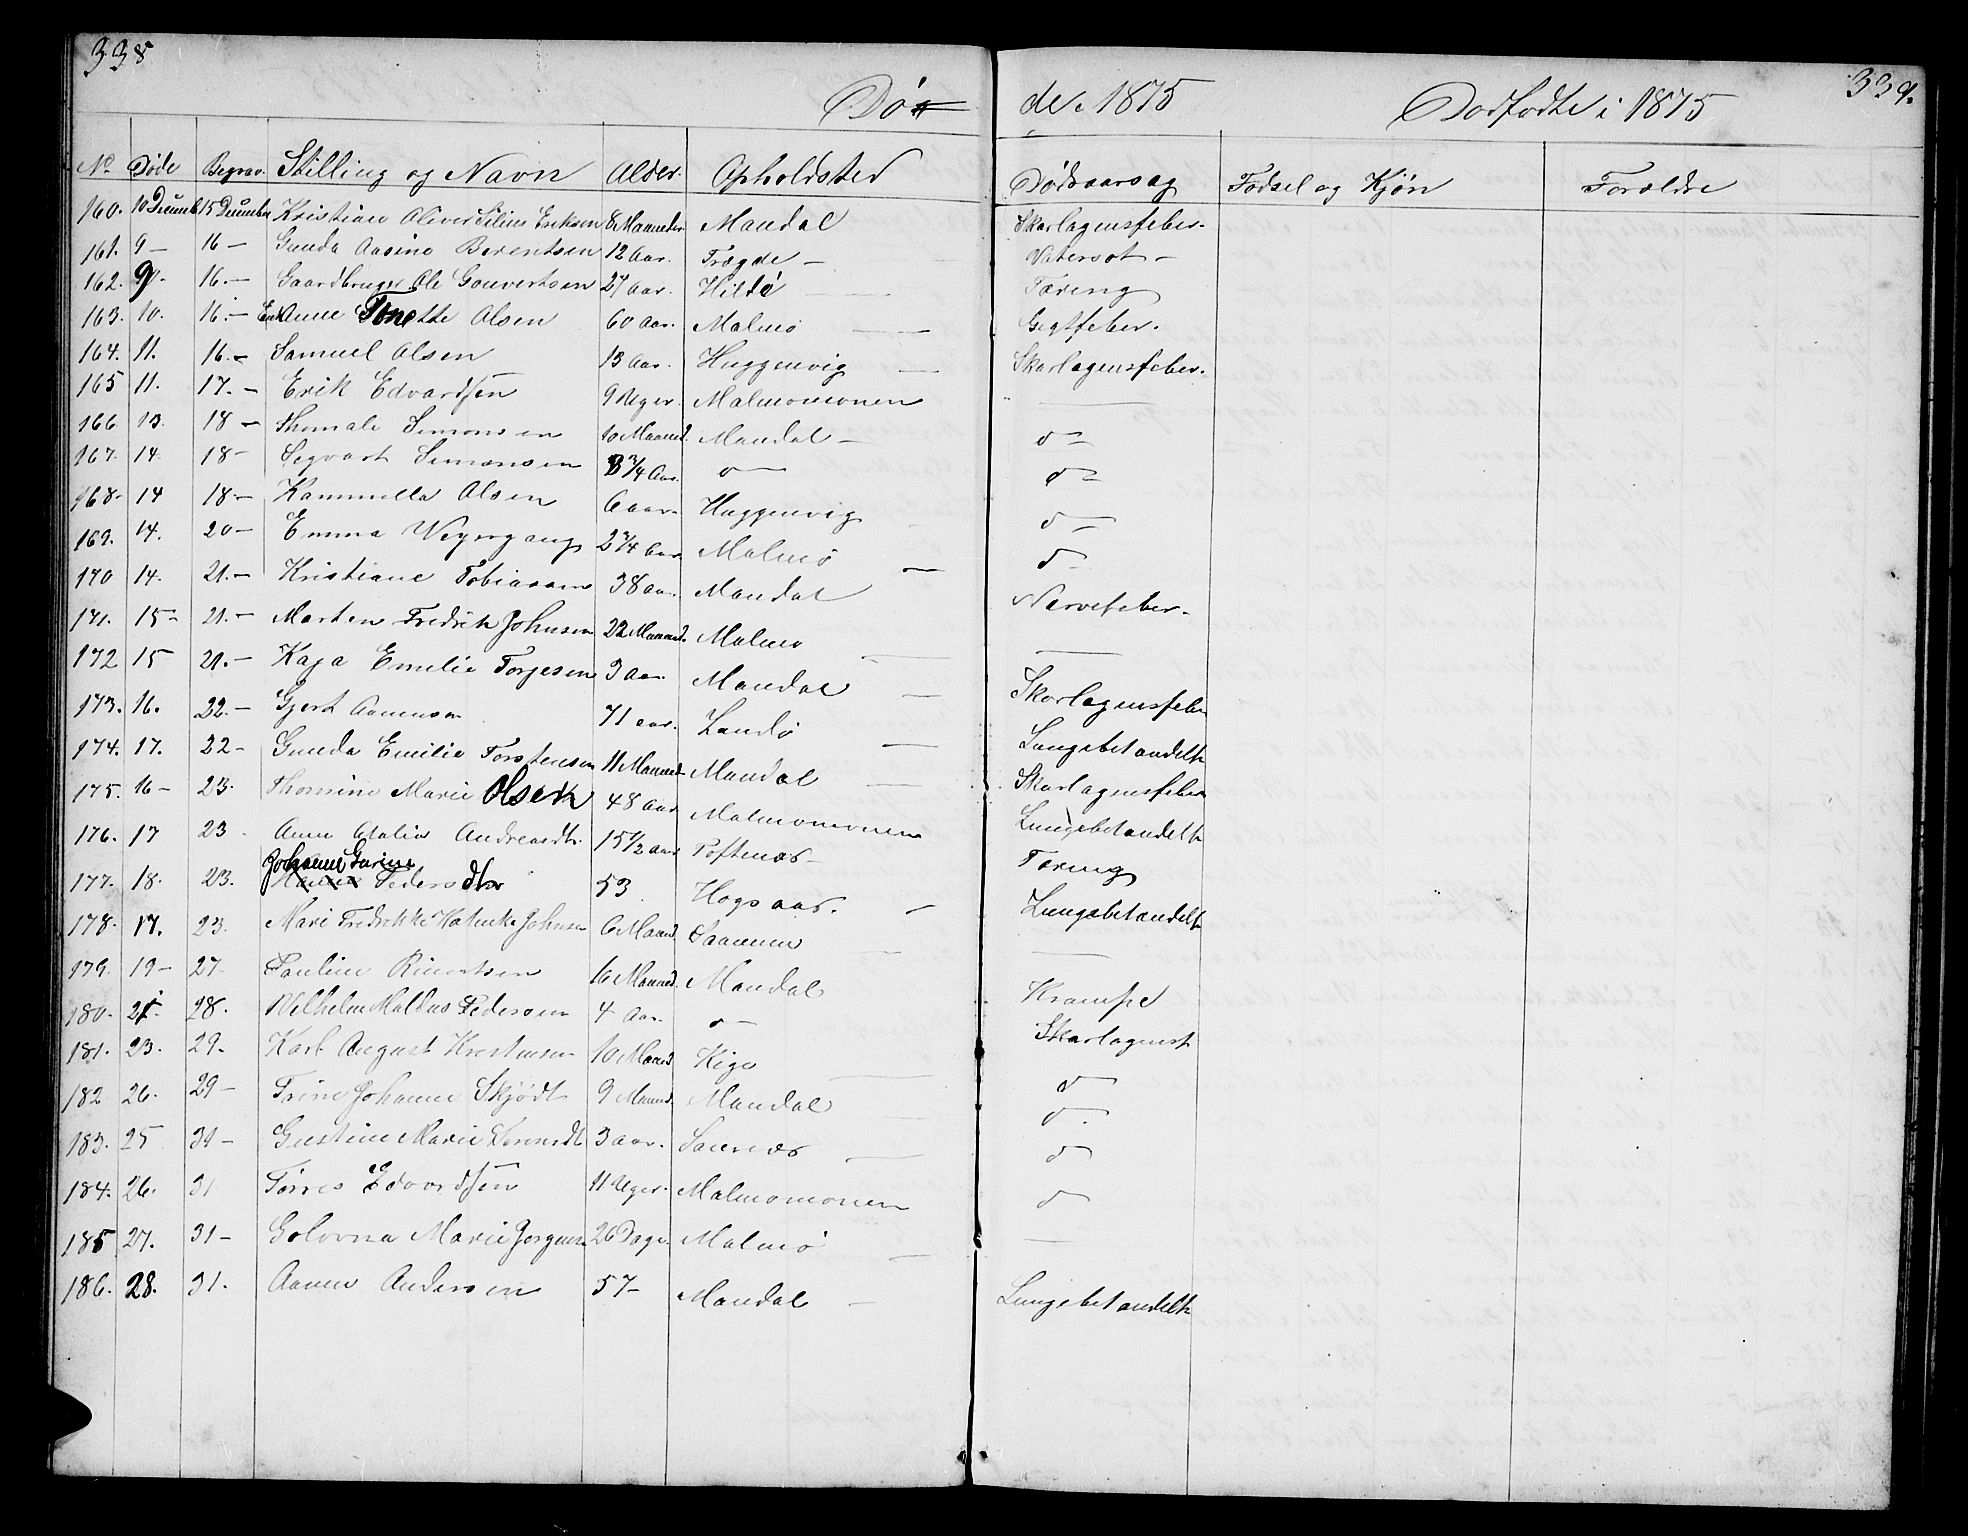 338
339.
Døde 1875
Dødfødte i 1875
No Døde Begrav. Stilling og Navn Alder. Opholdsted Dødsaarsag Fødsel og Kjøn Forældre
160. 10 Decemb 15 December Kristian Oliver Silius Eriksen 8 Maaneder Mandal Skarlagensfeber.
161. 9 — 16 — Gunda Aasine Berentsen 12 Aar. Trægde — Vatersot —
162. 9. 16. — Gaardbruger Ole Gouvertsen 27 aar. Hilde Tæring
163. 10. 16. — Enk Anne Tonette Olsen 60 Aar. Malmø — Gigtfeber.
164. 11. 16. — Samuel Olsen 13 Aar. Huggenvig — Skarlagensfeber.
165 11. 17. — Erik Edvardsen 9 Uger. Malmomonen —
166 13. 18 — Thomale Simonsen 10 Maaned. Mandal — d—
167. 14. 18 — Segvart Simonsen 3 3/4 Aar. d— d—
168. 14 18. — Kammilla Olsen 6 aar. Huggenvig — d—
169. 14. 20 — Emma Weyergang 2 3/4 Aar. Malmø — d—
170 14. 21. — Kristiane Tobiassen 38 aar. Mandal Nervefeber.
171. 15 — 21. — Marten Fredrik Johnsen 22 Maaned. Malmø — —
172 15 21. — Kaja Emilie Torjesen 3 Aar. Mandal — Skarlagensfeber
173. 16. 22. — Gjert Aanensen 71 aar. Landø — Lungebetændelse
174. 17. 22 — Gunda Emilie Torstensen 11 Maaned Mandal — Skarlagensfeber
175. 16 — 23. Thomine Marie Olsen 48 aar Malmomonen Lungebetændelse
176. 17 23. Anne Atalia Andreasdtr. 15 1/2 aar Toftenes — Tæring
177. 18. 23. Johanne Gurine Pedersdtr 53 Hogsaas. — Lungebetændelse
178. 17. 23. Mari Fredrikke Katinka Johnsen 6 Maaned Saanum — —
179. 19 — 27. Pauline Rinertsen 16 Maaned. Mandal Krampe
180. 21. 28. Wilhelm Maldus Pedersen 4 Aar. d— Skarlagensf
181. 23. 29. Karl August Kristensen 10 Maaned Kige — d—
182 26. 29 — Trine Johanne Skjødt 9 Maaned. Mandal — d—
183. 25. 31 — Gustine Marie 3 aar. Sannes — d—
184. 26. 31 Tørres Edvardsen 11 Uger. Malmomonen d—
185 27. 31 — Golovna Marie Jørgensen 26 Dage. Malmø — —
186. 28. 31. Aanen Andersen 57 — Mandal — Lungebetændelse